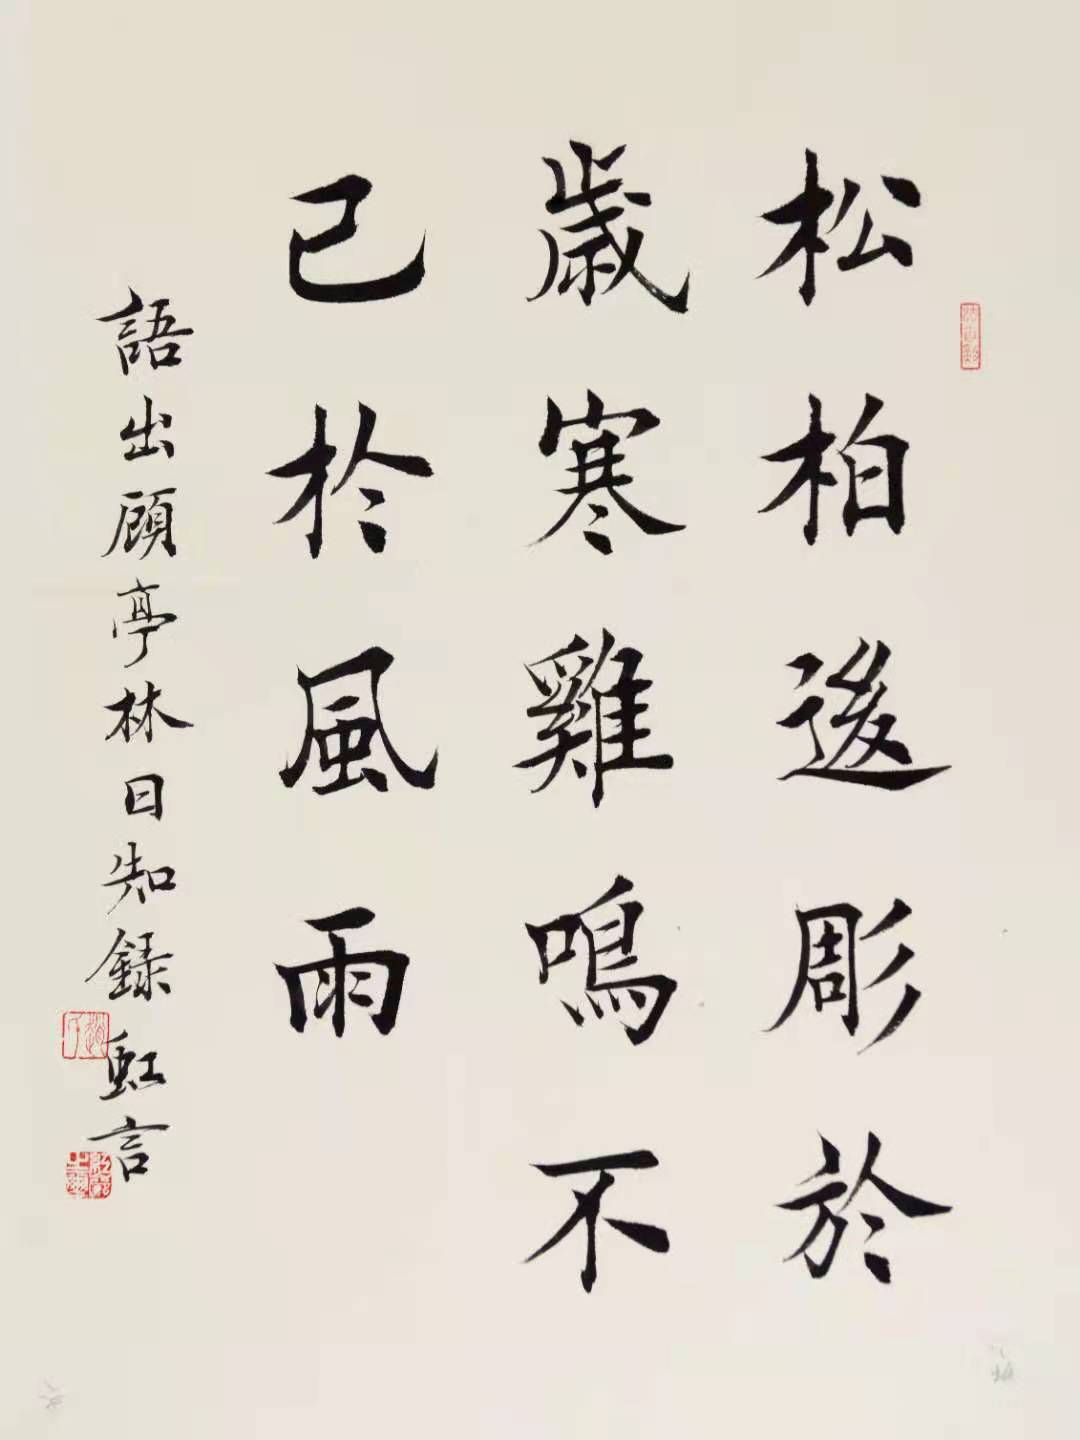 松柏後彫於
歲寒雞鳴不
已於風雨
語出顧亭林日知錄虹言